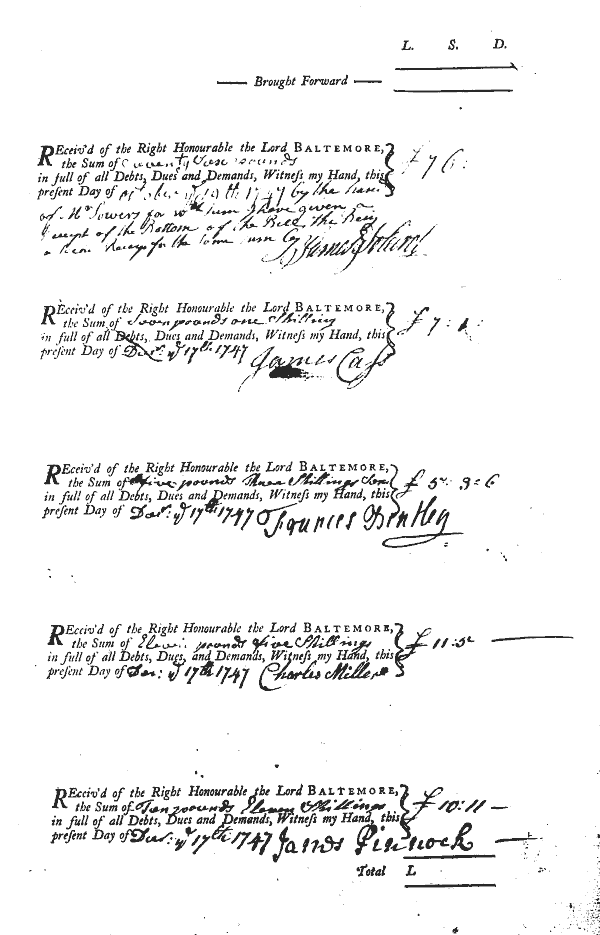 L. S. D.
Brought Forward
REceiv'd of the Right Honourable the Lord BALTEMORE,
the Sum of pounds £ 76:
in full of all Debts, Dues and Demands, Witness my Hand, this
present Day of 19th 1747 by the
of Mr Sowers for wch Sum I have given a
Receipt at the Bottom of the Bill This Being
a Receipt for the Same sum by James
REceiv'd of the Right Honourable the Lord BALTEMORE,
the Sum of Seven pounds one Shilling £ 7: 1:
in full of all Debts, Dues and Demands, Witness my Hand, this
present Day of Decr: ye 17th 1747 James Cass
REceiv'd of the Right Honourable the Lord BALTEMORE,
the Sum of five pounds Three Shillings £ 5: 3=6
in full of all Debts, Dues and Demands, Witness my Hand, this
present Day of Decr: ye 17th 1747 Frances Bentley
REceiv'd of the Right Honourable the Lord BALTEMORE,
the Sum of Eleven pounds five Shillings £ 11:5
in full of all Debts, Dues, and Demands, Witness my Hand, this
present Day of Decr: ye 17th 1747 Charles Miller
REceiv'd of the Right Honourable the Lord BALTEMORE,
the Sum of Ten pounds Eleven Shillings £ 10:11 —
in full of all Debts, Dues and Demands, Witness my Hand, this
present Day of Decr: ye 17th 1747 James Pinnock
Total L